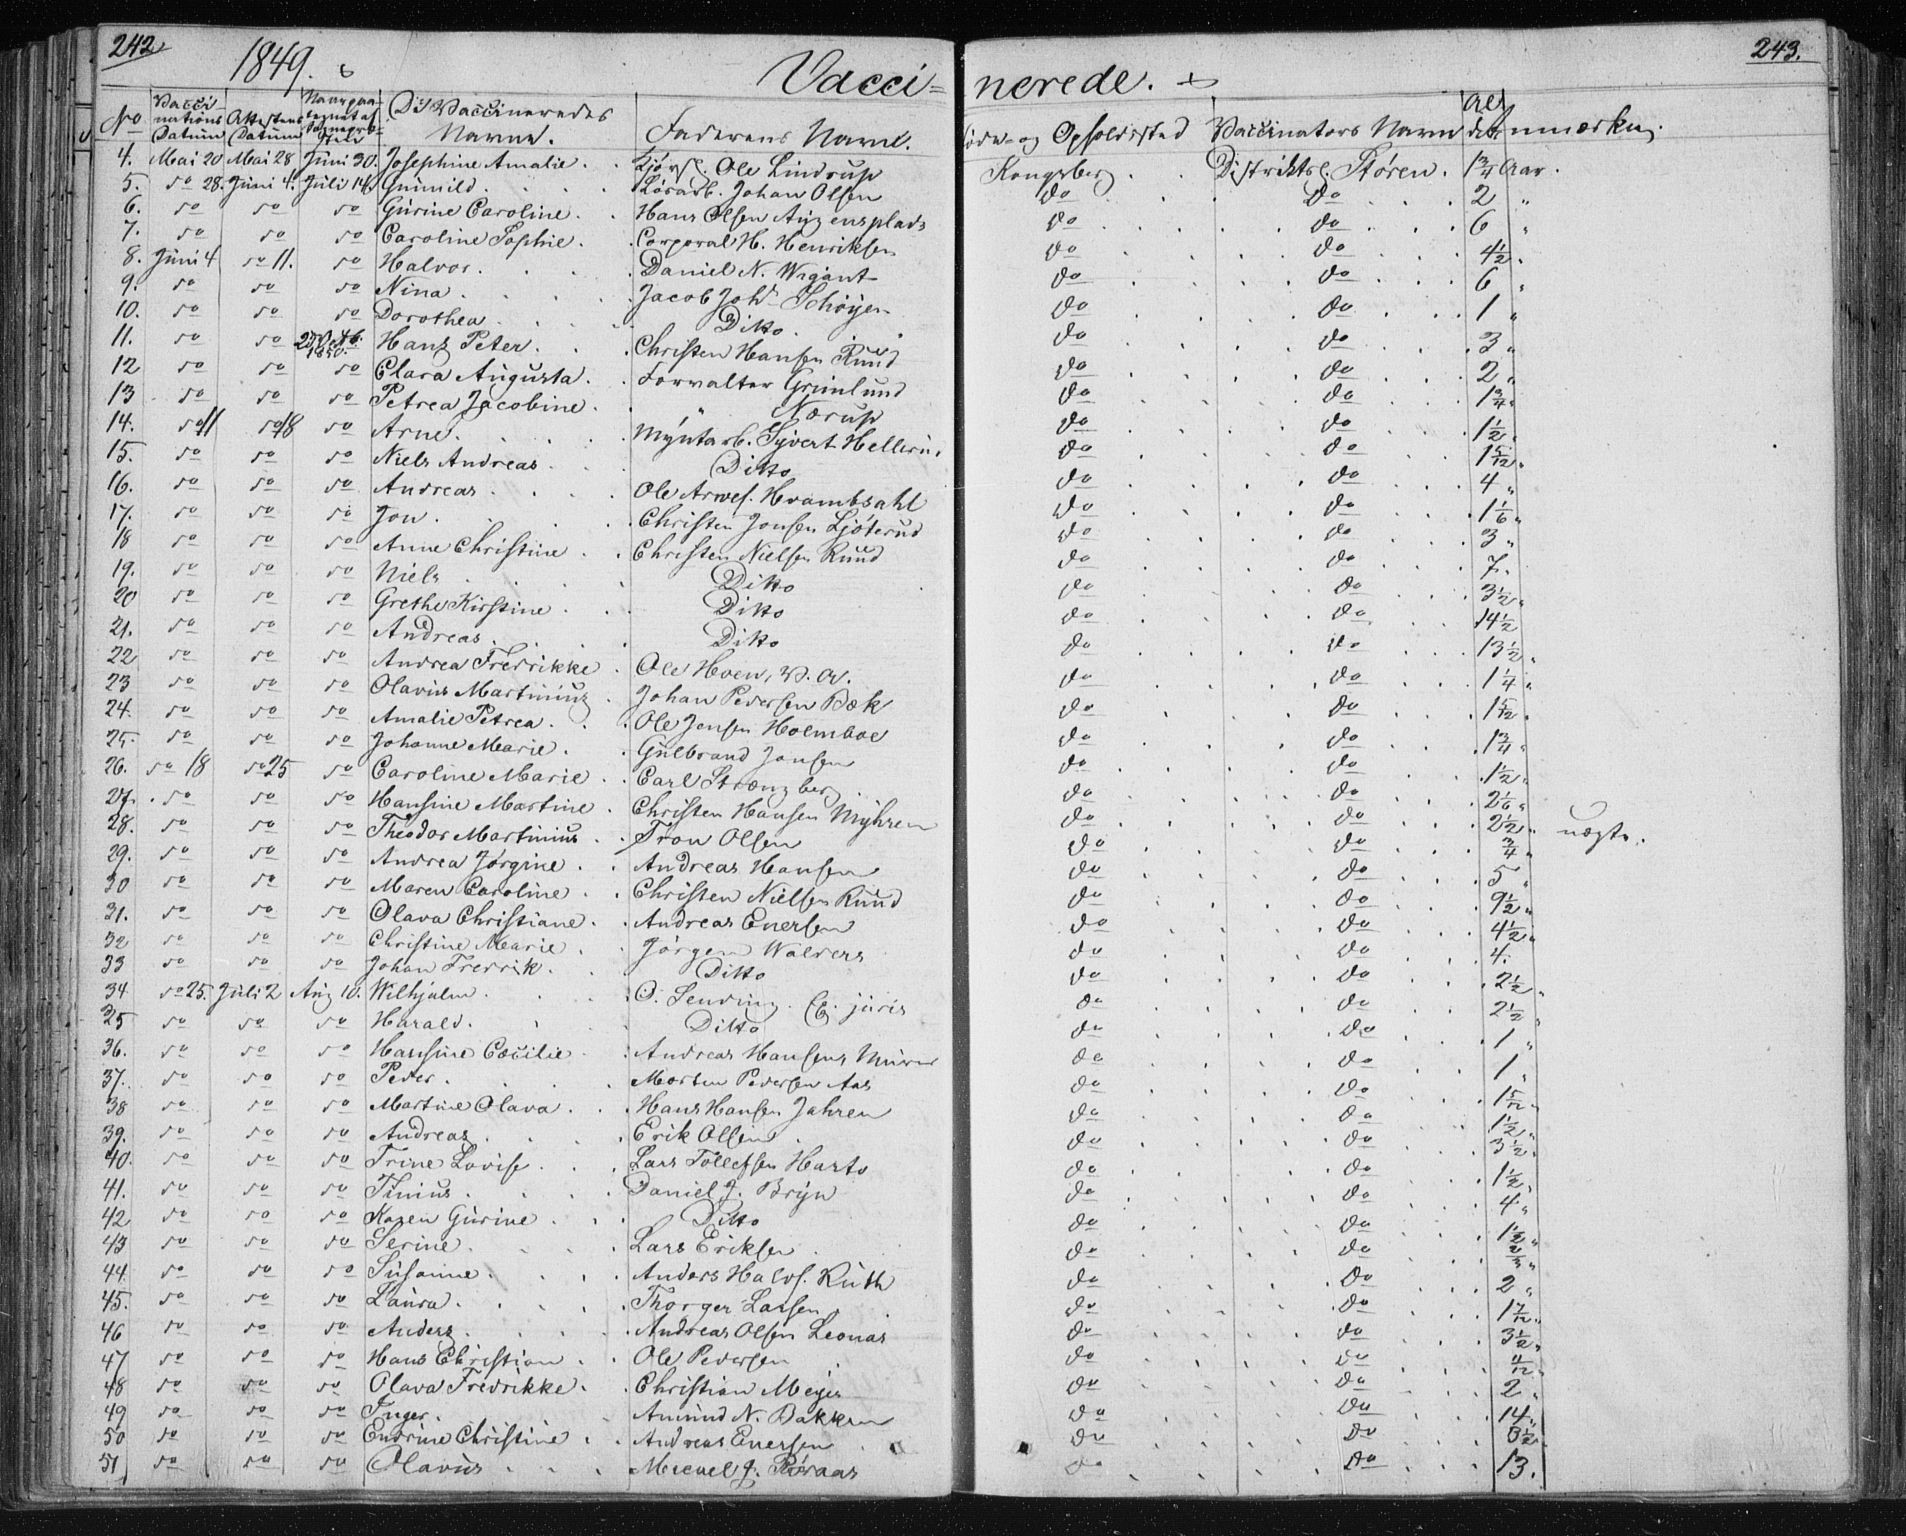 242 1849. Vacci= nerede. 243.
No Vaccinations Datum Attestens Datum De Vaccineredes Navne. Faderens Navne. Opholdssted Vaccinators Navn
4. Mai 20 Mai 28 Juni 30. Josephine Amalie. Ole Lindrup Kongsberg Distriktsl. Støren. 1 3/4 Aar.
5. do 28. Juni 4. Juli 14. Gunnild. Johan Olsen do do 2 "
6. do do do Gurine Caroline. Hans Olsen do do 6 "
7. do do do Caroline Sophie. Corporal H. Henriksen do do 4 1/2 "
8. Juni 4 do 11. do Halvor. Daniel N. Wigant do do 6 "
9. do do do Nina. Jacob Joh. Schöyen do do 1 "
10. do do do Dorothea. Ditto. do do 3 "
11. do do 1850. Hans Peter. Christen Hansen Ruud do do 2 "
12 do do do Clara Augusta. Forvalter Grimlund do do 1 3/4 "
13 do do do Petrea Jacobine. " Nærup do do 1 1/2 "
14. do 11 do 18 do Arne. Myntarb. Syvert do do 1 5/12 "
15. do do do Niels Andreas. Ditto do do 4 "
16. do do do Andreas. Ole do do 1 1/6 "
17. do do do Jon. Christen Jonsen Ljöterud do do 3 "
18 do do do Anne Christine. Christen Nielsen Ruud do do 7 "
19. do do do Niels Ditto do do 3 1/2 "
20 do do do Grethe Kirstine. Ditto do do 14 1/2
21. do do do Andreas. Ditto do do 13 1/2 "
22 do do do Andrea Fredrikke. Ole Hven, do do 1 1/4 "
23 do do do Olavus Martinius. Johan Pedersen Bæk do do 1 5/12 "
24. do do do Amalie Petrea. Ole Jensen Holmboe do do 1 3/4 "
25. do do do Johanne Marie. Gulbrand Jonsen do do 1 1/2 "
26. do 18 do 25 do Caroline Marie. Carl do do 2 1/6 "
27. do do do Hansine Martine. Christen Hansen Myhren do do 2 1/2 "
28. do do do Theodor Martinius. Tron Olsen do do 3/4 "
29. do do do Andrea Jørgine. Andreas Hansen do do 5 "
30 do do do Maren Caroline. Christen Nielsen Ruud do do 9 1/2 "
31. do do do Olava Christiane. Andreas Enersen do do 4 1/2 "
32 do do do Christine Marie. Jörgen Walders do do 4.
33 do do do Johan Fredrik. Ditto do do 2 1/2 "
34. do 25. Juli 2 Aug 10. Wilhjelm. O. Sending. juris do do 2 1/2 "
35 do do do Harald. Ditto do do 1 "
36. do do do Hansine Cæcilie. Andreas Hansen do do 1 "
37. do do do Peder. Morten Pedersen Aas do do 1 5/12 "
38 do do do Martine Olava. Hans Hansen Jahren do do 1 1/2 "
39. do do do Andreas. Erik Olsen do do 3 1/2 "
40. do do do Trine Lovise. Lars Tollefsen do do 1 1/2 "
41. do do do Tinius. Daniel J. Bryn do do 4 "
42 do do do Karen Gurine. Ditto do do 1 1/2 "
43 do do do Serine. Lars Eriksen do do 2/3 "
44. do do do Susanne. Anders Halvs. Ruth do do 2 "
45. do do do Laura. Thorger Larsen do do 1 7/12 "
46 do do do Anders. Andreas Olsen Leonas do do 3 1/2 "
47 do do do Hans Christian. Ole Pedersen do do
48 do do do Olava Fredrikke. Christian Meyer do do 2 "
49 do do do Inger. Amund N. Bakken do do 14 "
50 do do do Christine. Andreas Enersen do do
51 do do do Olavus do do 13.